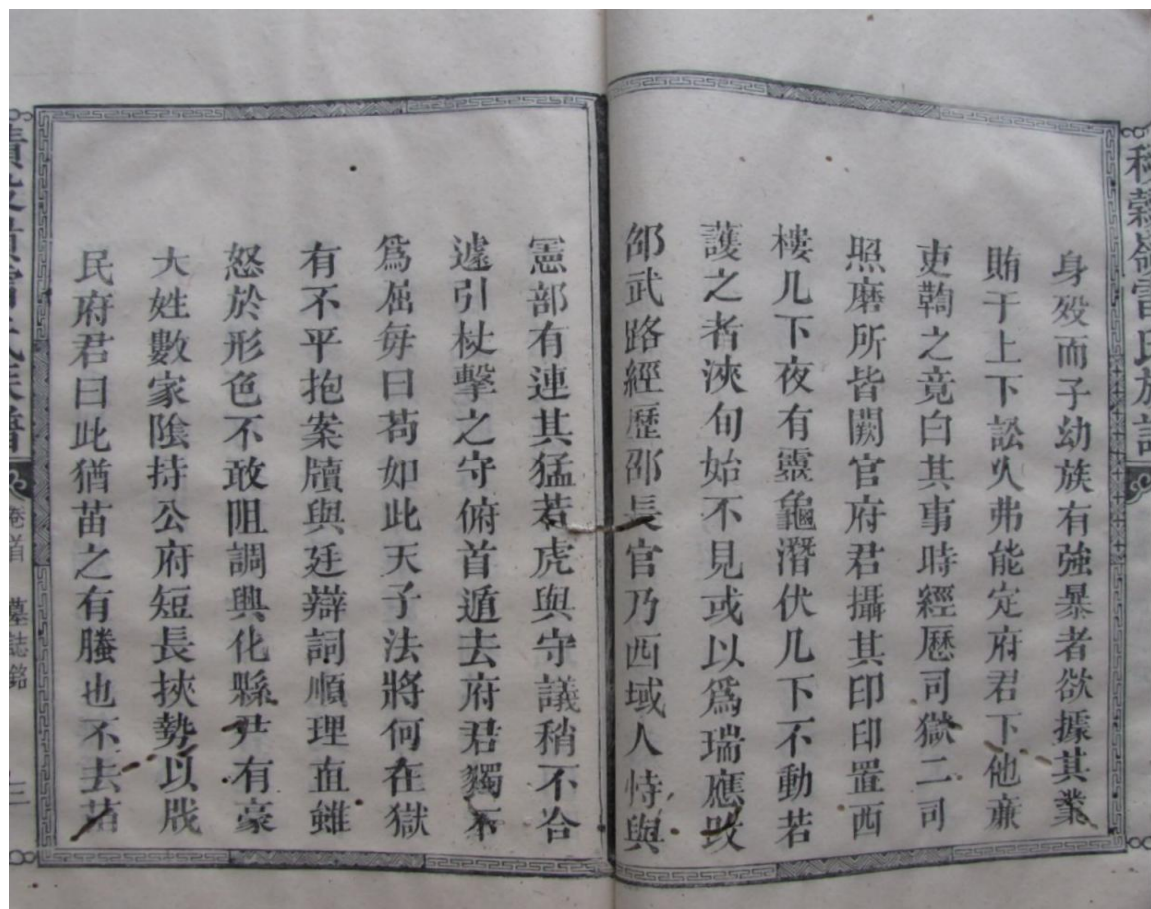 身歿而子幼族有強暴者欲據其業
賄于上下訟久弗能定府君下他廉
吏鞫之竟白其事時經歷司獄二司
照磨所皆闕官府君攝其印印置西
樓几下夜有靈龜潛伏几下不動若
護之者浹旬始不見或以爲瑞應改
邵武路經歷邵長官乃西域人恃與
憲部有連其猛若虎與守議稍不合
遽引杖擊之守俯首遁去府君獨不
爲屈每曰苟如此天子法將何在獄
有不平抱案牘與廷辯詞順理直雖
怒於形色不敢阻調興化縣尹有豪
大姓數家陰持公府短長挾勢以戕
民府君曰此猶苗之有螣也不去苗
雷氏族譜
卷首
墓誌銘
三